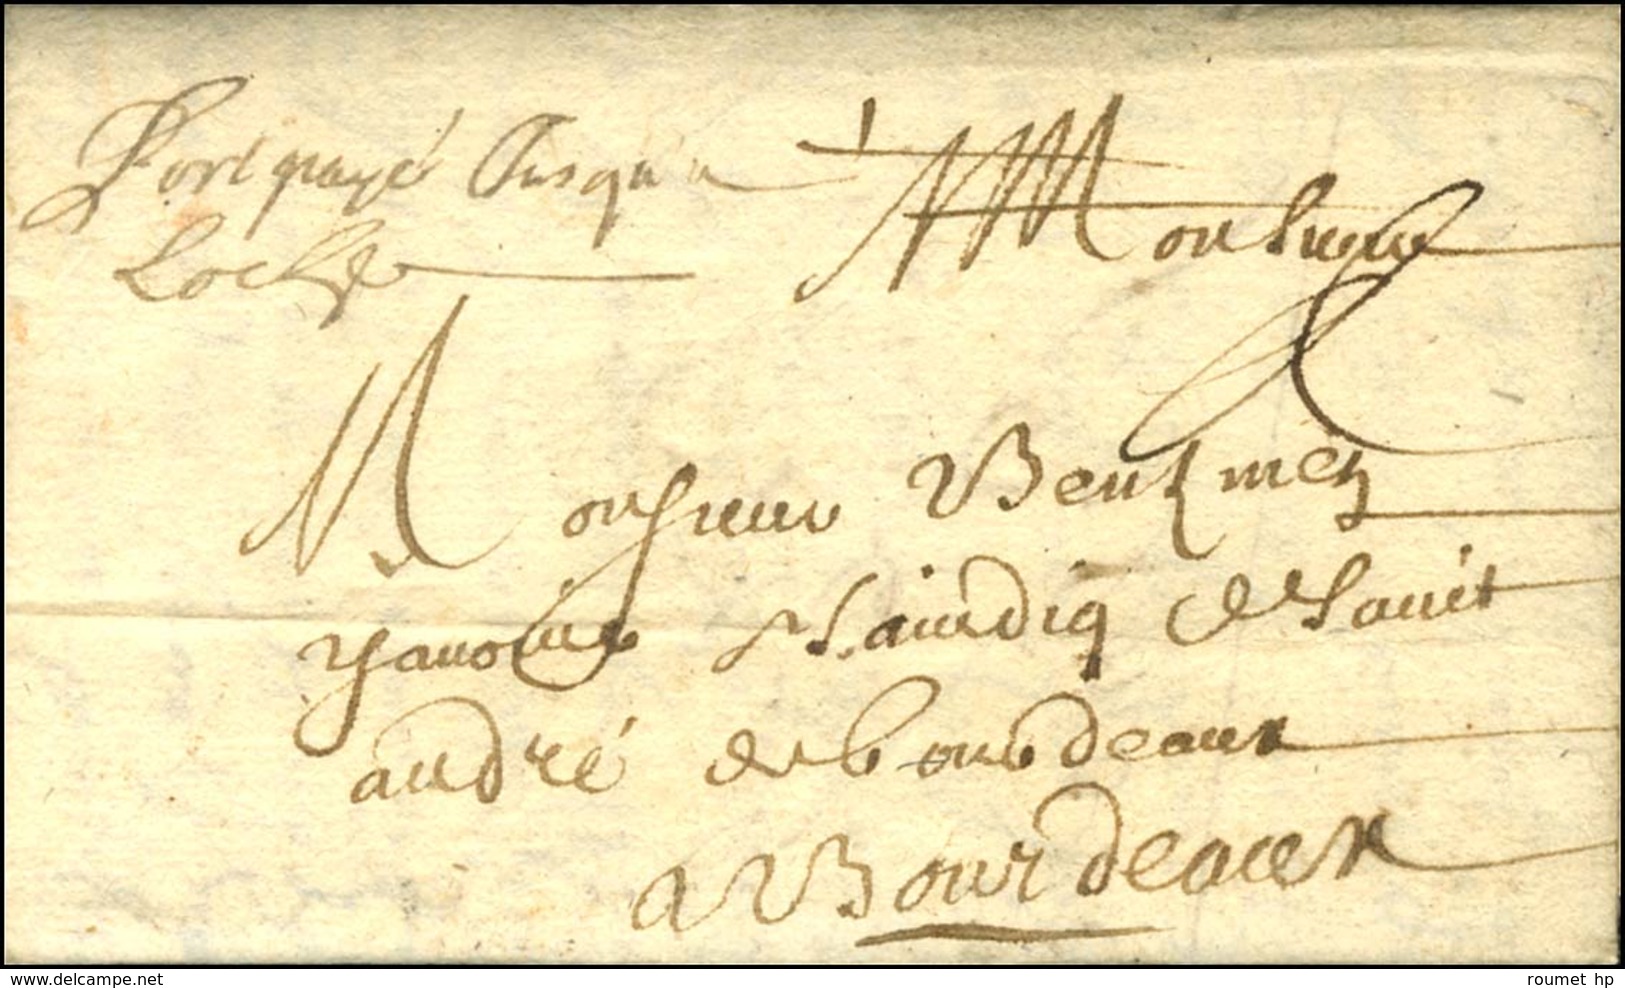 Port payé Jusqu'a
Loche
A Monsieur
Monsieur Benzmen
yanoine Saindiq de Sainct
andré de bourdeaux
a Bourdeaux
www.delcampe.net
roumet hp